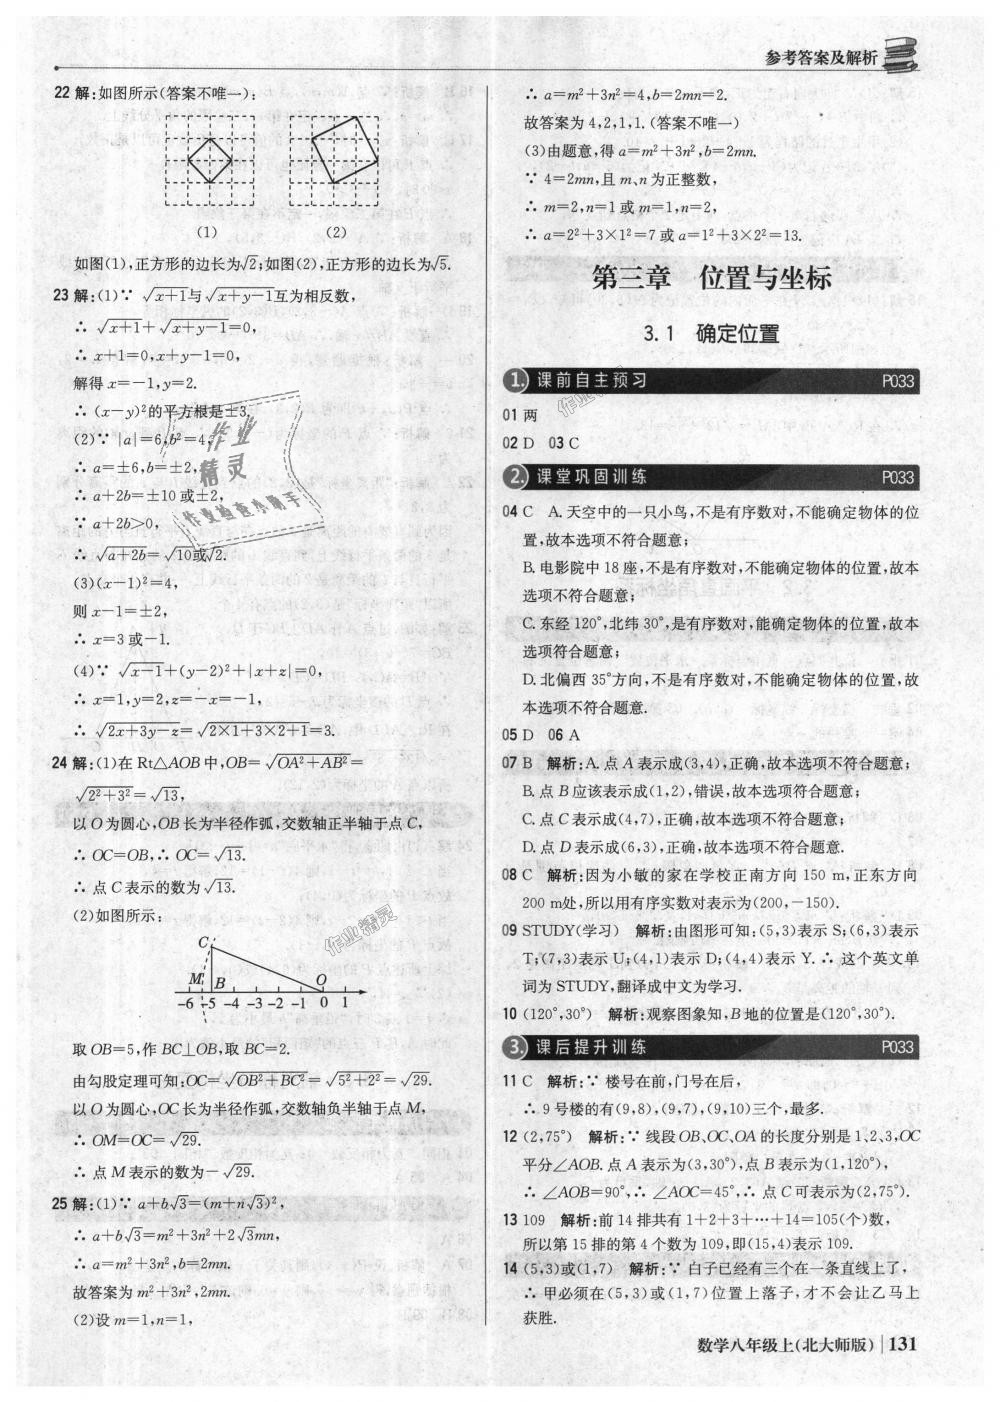 参考答案及解析
22 解:如图所示(答案不唯一):
(1) (2)
如图(1),正方形的边长为√2;如图(2),正方形的边长为√5.
23 解:(1)∵ √x+1与√x+y-1互为相反数,
∴ √x+1+√x+y-1=0,
∴ x+1=0,x+y-1=0,
解得 x=-1,y=2.
∴ (x-y)²的平方根是±3.
(2)∵ |a|=6,b²=4,
∴ a=±6,b=±2,
∴ a+2b=±10 或±2,
∵ a+2b>0,
∴ √a+2b=√10或√2.
(3)(x-1)²=4,
则 x-1=±2,
∴ x=3 或-1.
(4)∵ √x-1+(y-2)²+|x+z|=0,
∴ x=1,y=2,z=-x=-1,
∴ √2x+3y-z=√2×1+3×2+1=3.
24 解:(1)在 Rt△AOB 中,OB=√OA²+AB²=
√2²+3²=√13,
以 O 为圆心,OB 长为半径作弧,交数轴正半轴于点 C,
∴ OC=OB,∴ OC=√13.
∴ 点 C 表示的数为√13.
(2)如图所示:
C
M B O
-6 -5 -4 -3 -2 -1 0 1
取 OB=5,作 BC⊥OB,取 BC=2.
由勾股定理可知:OC=√OB²+BC²=√5²+2²=√29.
以 O 为圆心,OC 长为半径作弧,交数轴负半轴于点 M,
∴ OM=OC=√29.
∴ 点 M 表示的数为-√29.
25 解:(1)∵ a+b√3=(m+n√3)²,
∴ a+b√3=m²+3n²+2√3mn,
∴ a=m²+3n²,b=2mn.
故答案为 m²+3n²,2mn.
(2)设 m=1,n=1,
∴ a=m²+3n²=4,b=2mn=2.
故答案为 4,2,1,1.(答案不唯一)
(3)由题意,得 a=m²+3n²,b=2mn.
∵ 4=2mn,且 m、n 为正整数,
∴ m=2,n=1 或 m=1,n=2,
∴ a=2²+3×1²=7 或 a=1²+3×2²=13.
第三章 位置与坐标
3.1 确定位置
1. 课前自主预习 P033
01 两
02 D 03 C
2. 课堂巩固训练 P033
04 C A.天空中的一只小鸟,不是有序数对,不能确定物体的位
置,故本选项不符合题意;
B.电影院中 18 座,不是有序数对,不能确定物体的位置,故本
选项不符合题意;
C.东经 120°,北纬 30°,是有序数对,能确定物体的位置,故本
选项符合题意;
D.北偏西 35°方向,不是有序数对,不能确定物体的位置,故
本选项不符合题意.
05 D 06 A
07 B 解析:A.点 A 表示成(3,4),正确,故本选项不符合题意;
B.点 B 应该表示成(1,2),错误,故本选项符合题意;
C.点 C 表示成(4,7),正确,故本选项不符合题意;
D.点 D 表示成(6,3),正确,故本选项不符合题意.
08 C 解析:因为小敏的家在学校正南方向 150 m,正东方向
200 m处,所以用有序实数对表示为(200,-150).
09 STUDY(学习) 解析:由图形可知:(5,3)表示 S;(6,3)表示
T;(7,3)表示 U;(4,1)表示 D;(4,4)表示 Y.∴ 这个英文单
词为 STUDY,翻译成中文为学习.
10 (120°,30°) 解析:观察图象知,B 地的位置是(120°,30°).
3. 课后提升训练 P033
11 C 解析:∵ 楼号在前,门号在后,
∴ 9 号楼的有(9,8),(9,7),(9,10)三个,最多.
12 (2,75°) 解析:∵ 线段 OB、OC、OA 的长度分别是 1、2、3,OC
平分∠AOB.点 A 表示为(3,30°),点 B 表示为(1,120°),
∴ ∠AOB=90°,∴ ∠AOC=45°,∴ 点 C 可表示为(2,75°).
13 109 解析:前 14 排共有 1+2+3+…+14=105(个)数,
所以第 15 排的第 4 个数为 109,即(15,4)表示 109.
14 (5,3)或(1,7) 解析:∵ 白子已经有三个在一条直线上了,
∴ 甲必须在(5,3)或(1,7)位置上落子,才不会让乙马上
获胜.
数学八年级上(北大师版) 131
作业
精灵
作业检查小助手
作业精灵